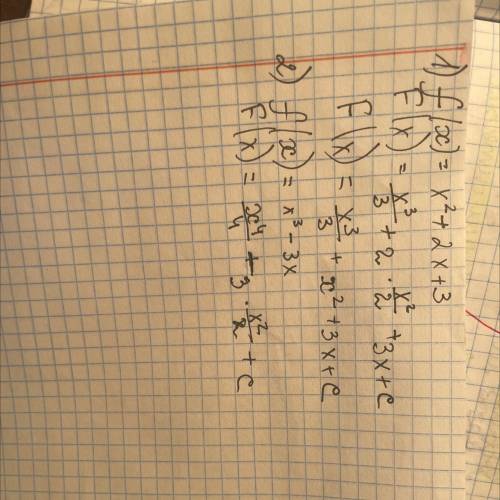 1) f(x) = x² + 2x + 3
F(x) = x³/3 + 2 · x²/2 + 3x + C
F(x) = x³/3 + x² + 3x + C
2) f(x) = x³ - 3x
F(x) = x⁴/4 - 3 · x²/2 + C